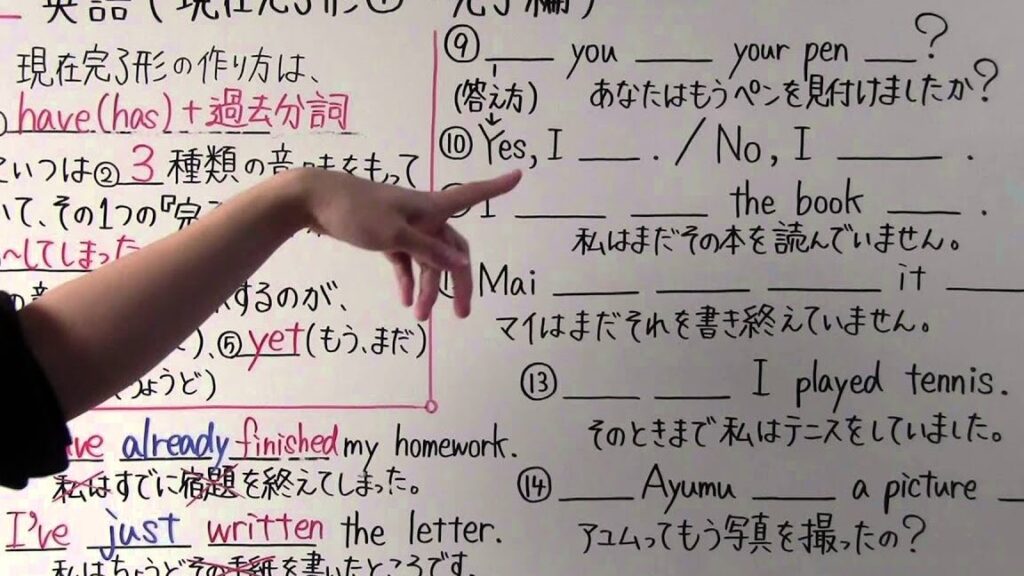 英語(現在完了形① 完了編)
現在完了形の作り方は、
have(has)+過去分詞
ていつは②3種類の意味をもって
いて、その1つの『完
~してしまった
するのが、
)、⑤yet(もう、まだ)
ょうど)
already finished my homework.
私はすでに宿題を終えてしまった。
I've just written the letter.
私はちょうどその手紙を書いたところです。
⑨ ____ you ____ your pen ___?
(答え方) あなたはもうペンを見付けましたか?
⑩ Yes, I ___ . / No, I _____ .
I _____ ____ the book ____ .
私はまだその本を読んでいません。
Mai _____ _____ ______ it ____
マイはまだそれを書き終えていません。
⑬ ____ ____ I played tennis.
そのときまで私はテニスをしていました。
⑭ ____ Ayumu ____ a picture _
アユムってもう写真を撮ったの?